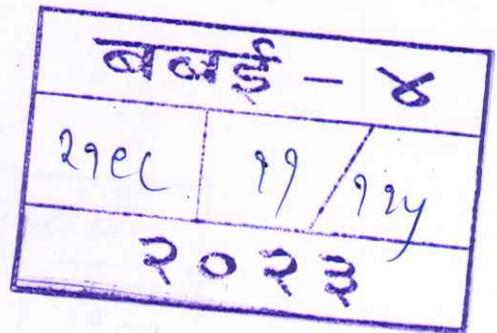 बबई - ४
२१९८ ११/११५
२०२३